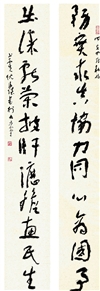 務實求真協力同心為國事
出謀獻策披肝瀝膽惠民生